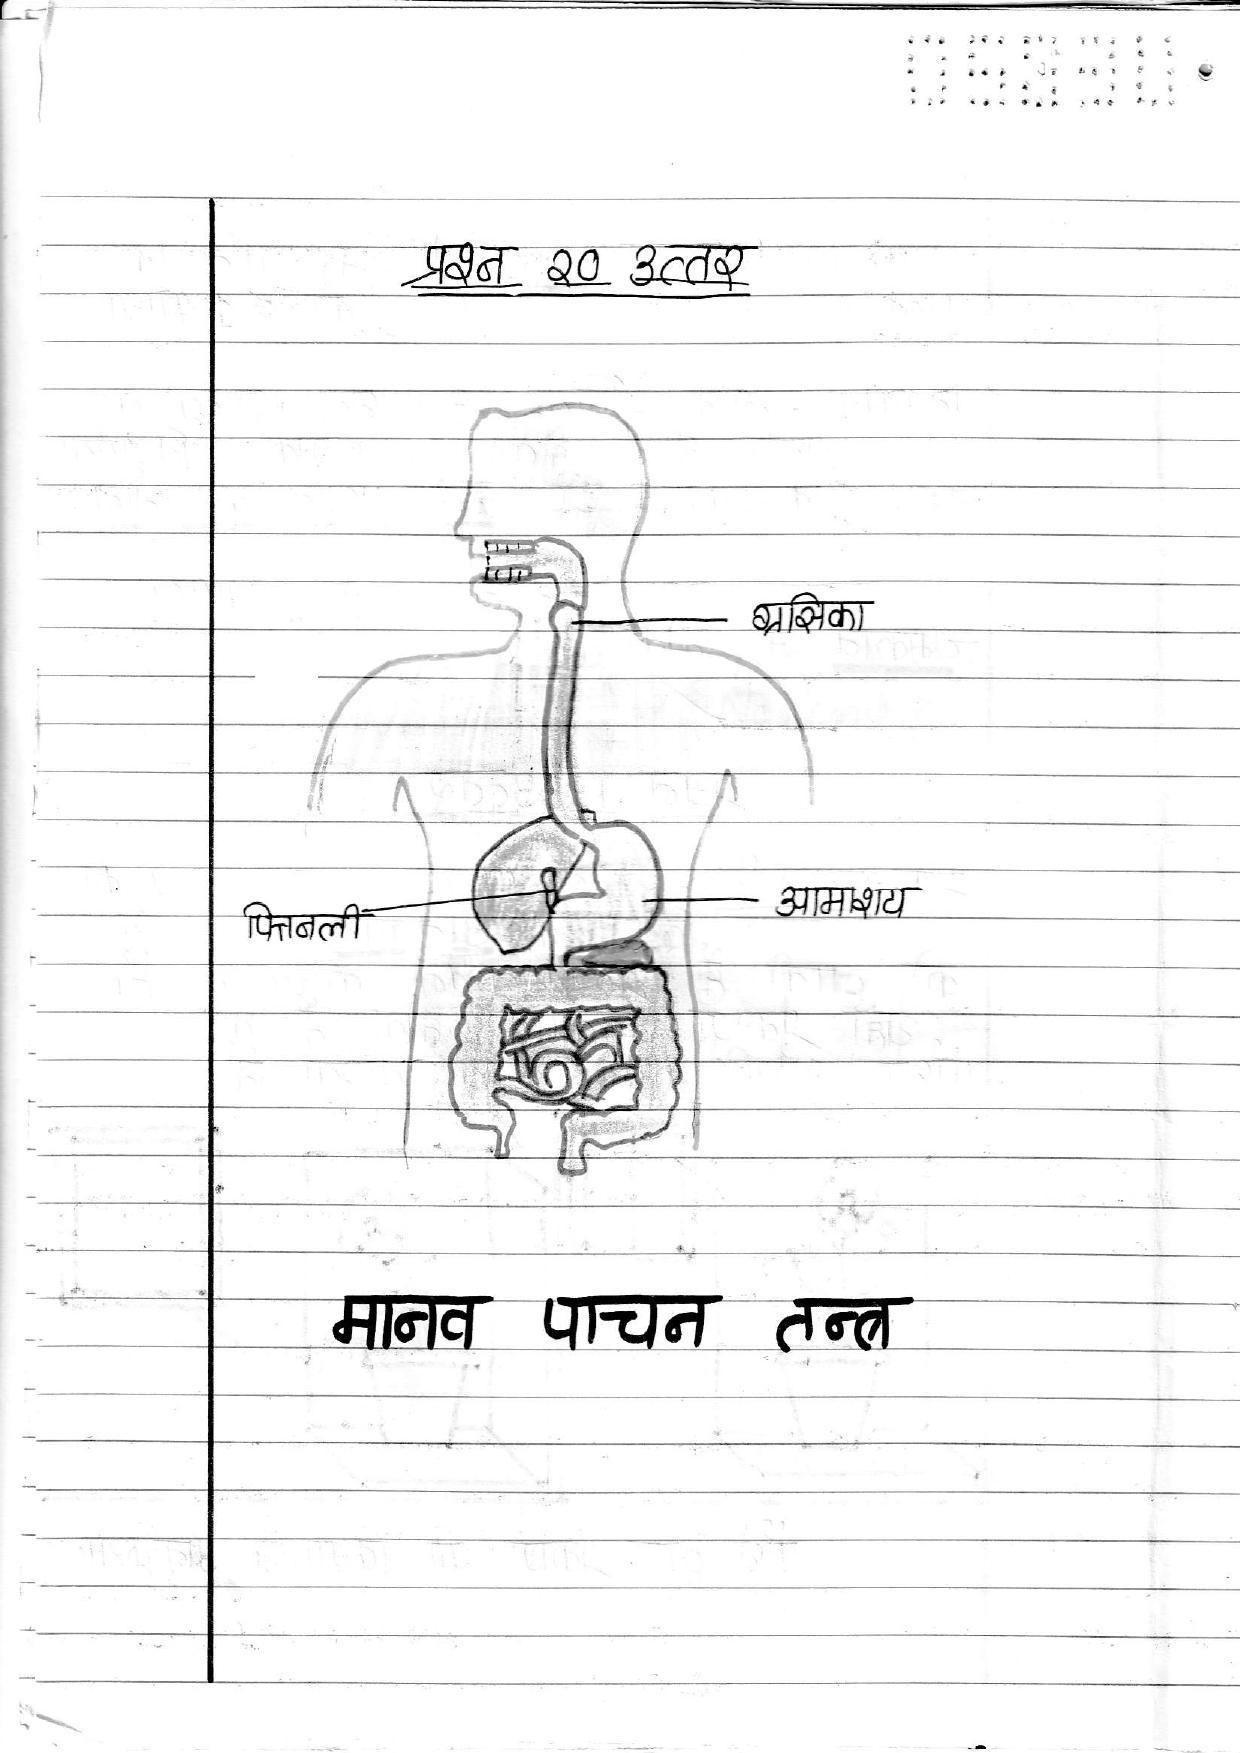 प्रश्न २० उत्तर
ग्रसिका
आमाशय
पित्तबली
मानव पाचन तन्त्र